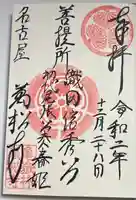 奉拝
令和二年
十二月二十八日
織田信秀公
菩提所
初代尾張藩春姫
名古屋
萬松寺